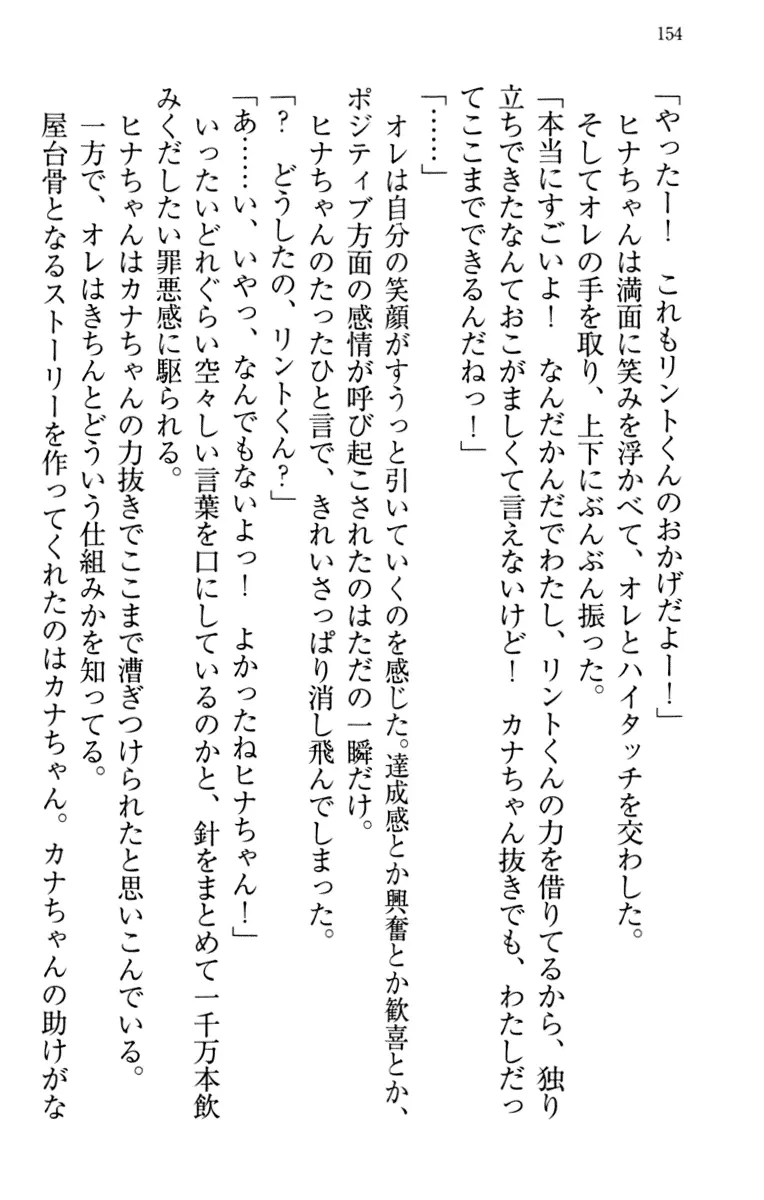 154
「やったー！　これもリントくんのおかげだよー！」
　ヒナちゃんは満面に笑みを浮かべて、オレとハイタッチを交わした。
　そしてオレの手を取り、上下にぶんぶん振った。
「本当にすごいよ！　なんだかんだでわたし、リントくんの力を借りてるから、独り
立ちできたなんておこがましくて言えないけど！　カナちゃん抜きでも、わたしだっ
てここまでできるんだねっ！」
「……」
　オレは自分の笑顔がすうっと引いていくのを感じた。達成感とか興奮とか歓喜とか、
ポジティブ方面の感情が呼び起こされたのはただの一瞬だけ。
　ヒナちゃんのたったひと言で、きれいさっぱり消し飛んでしまった。
「？　どうしたの、リントくん？」
「あ……い、いやっ、なんでもないよっ！　よかったねヒナちゃん！」
　いったいどれぐらい空々しい言葉を口にしているのかと、針をまとめて一千万本飲
みくだしたい罪悪感に駆られる。
　ヒナちゃんはカナちゃんの力抜きでここまで漕ぎつけられたと思いこんでいる。
　一方で、オレはきちんとどういう仕組みかを知ってる。
　屋台骨となるストーリーを作ってくれたのはカナちゃん。カナちゃんの助けがな